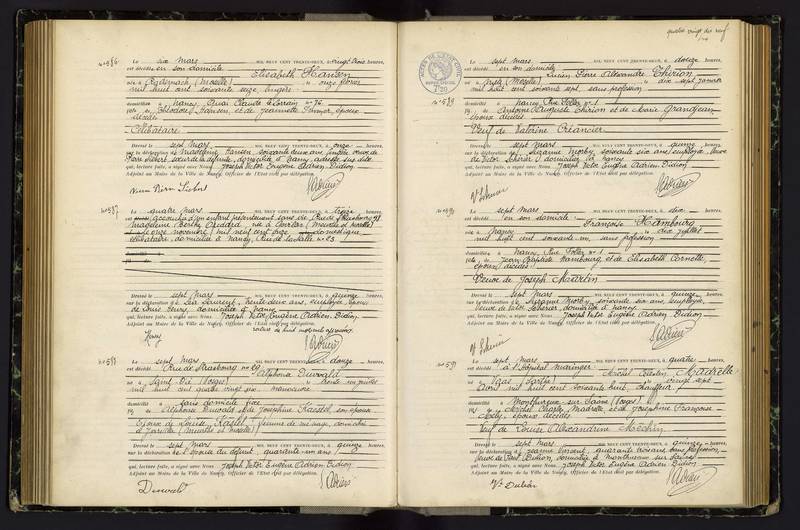 quatre vingt dix neuf
N° 586
Le six mars MIL NEUF CENT TRENTE-DEUX, à vingt trois heures,
est décédée en son domicile Elisabeth Hansen
née à Rodemach (Moselle) le onze février
mil huit cent soixante seize, lingère
domiciliée à Nancy, Quai Claude le Lorrain n° 76
fille de Théodore Hansen et de Jeannette époux
décédés
Célibataire
Dressé le sept mars MIL NEUF CENT TRENTE-DEUX, à onze heures,
sur la déclaration de Hansen, soixante deux ans, veuve de
soeur de la défunte, domiciliée à Nancy
qui, lecture faite, a signé avec Nous Joseph Victor Eugène Adrien Didion
Adjoint au Maire de la Ville de Nancy, Officier de l'Etat civil par délégation.
N° 587
Le quatre mars MIL NEUF CENT TRENTE-DEUX, à treize heures,
est accouchée d'un enfant présentement sans vie
Madeleine née à (Meurthe et Moselle)
le onze novembre mil neuf cent onze domestique
célibataire domiciliée à Nancy, Rue de n° 23
Dressé le sept mars MIL NEUF CENT TRENTE-DEUX, à quinze heures,
sur la déclaration de Laurent, trente deux ans, employée, épouse
de Louis Henry, domiciliée à Nancy
qui, lecture faite, a signé avec Nous Joseph Victor Eugène Adrien Didion
Adjoint au Maire de la Ville de Nancy, Officier de l'Etat civil par délégation.
Henry
N° 588
Le sept mars MIL NEUF CENT TRENTE-DEUX, à douze heures,
est décédé Rue de Strasbourg n° 29 Alphonse Duwald
né à Saint Dié (Vosges) le trente un juillet
mil huit cent quatre vingt six, manoeuvre
sans domicile fixe
fils de Alphonse Duwald et de Joséphine Kaestel, son épouse
Epoux de Louise femme de ménage, domiciliée
à Jarville (Meurthe et Moselle)
Dressé le sept mars MIL NEUF CENT TRENTE-DEUX, à quinze heures,
sur la déclaration de l'épouse du défunt, quarante un ans
qui, lecture faite, a signé avec Nous Joseph Victor Eugène Adrien Didion
Adjoint au Maire de la Ville de Nancy, Officier de l'Etat civil par délégation.
Duwald
N° 589
Le sept mars MIL NEUF CENT TRENTE-DEUX, à douze heures,
est décédé en son domicile Lucien Pierre Alexandre Thirion
né à Metz (Moselle) le dix sept janvier
mil huit cent soixante sept, sans profession
domicilié à Nancy, Rue n° 1
fils de Antoine Auguste Thirion et de Marie Grandjean
époux décédés
Veuf de Valérine Créancier
Dressé le sept mars MIL NEUF CENT TRENTE-DEUX, à quinze heures,
sur la déclaration de Suzanne soixante six ans, employée, veuve
de Victor domiciliée à Nancy
qui, lecture faite, a signé avec Nous Joseph Victor Eugène Adrien Didion
Adjoint au Maire de la Ville de Nancy, Officier de l'Etat civil par délégation.
N° 590
Le sept mars MIL NEUF CENT TRENTE-DEUX, à dix heures,
est décédée en son domicile Françoise Hambourg
née à Nancy le dix juillet
mil huit cent soixante un, sans profession
domiciliée à Nancy, Rue n° 1
fille de Jean Baptiste Hambourg et de Elisabeth Cornette,
époux décédés
Veuve de Joseph Martin
Dressé le sept mars MIL NEUF CENT TRENTE-DEUX, à quinze heures,
sur la déclaration de Suzanne soixante six ans, employée,
veuve de Victor domiciliée à Nancy
qui, lecture faite, a signé avec Nous Joseph Victor Eugène Adrien Didion
Adjoint au Maire de la Ville de Nancy, Officier de l'Etat civil par délégation.
N° 591
Le sept mars MIL NEUF CENT TRENTE-DEUX, à quatre heures,
est décédé à l'Hôpital Maringer Michel Célestin Madrelle
né à Vaas (Sarthe) le vingt sept
août mil huit cent soixante huit, chauffeur
domicilié à Monthureux sur Saône (Vosges)
fils de Michel Charles Madrelle et de Joséphine Françoise
époux décédés
Veuf de Louise Alexandrine Méchin
Dressé le sept mars MIL NEUF CENT TRENTE-DEUX, à quinze heures,
sur la déclaration de Jeanne quarante trois ans, sans profession,
veuve de Paul domiciliée à Monthureux sur Saône
qui, lecture faite, a signé avec Nous Joseph Victor Eugène Adrien Didion
Adjoint au Maire de la Ville de Nancy, Officier de l'Etat civil par délégation.